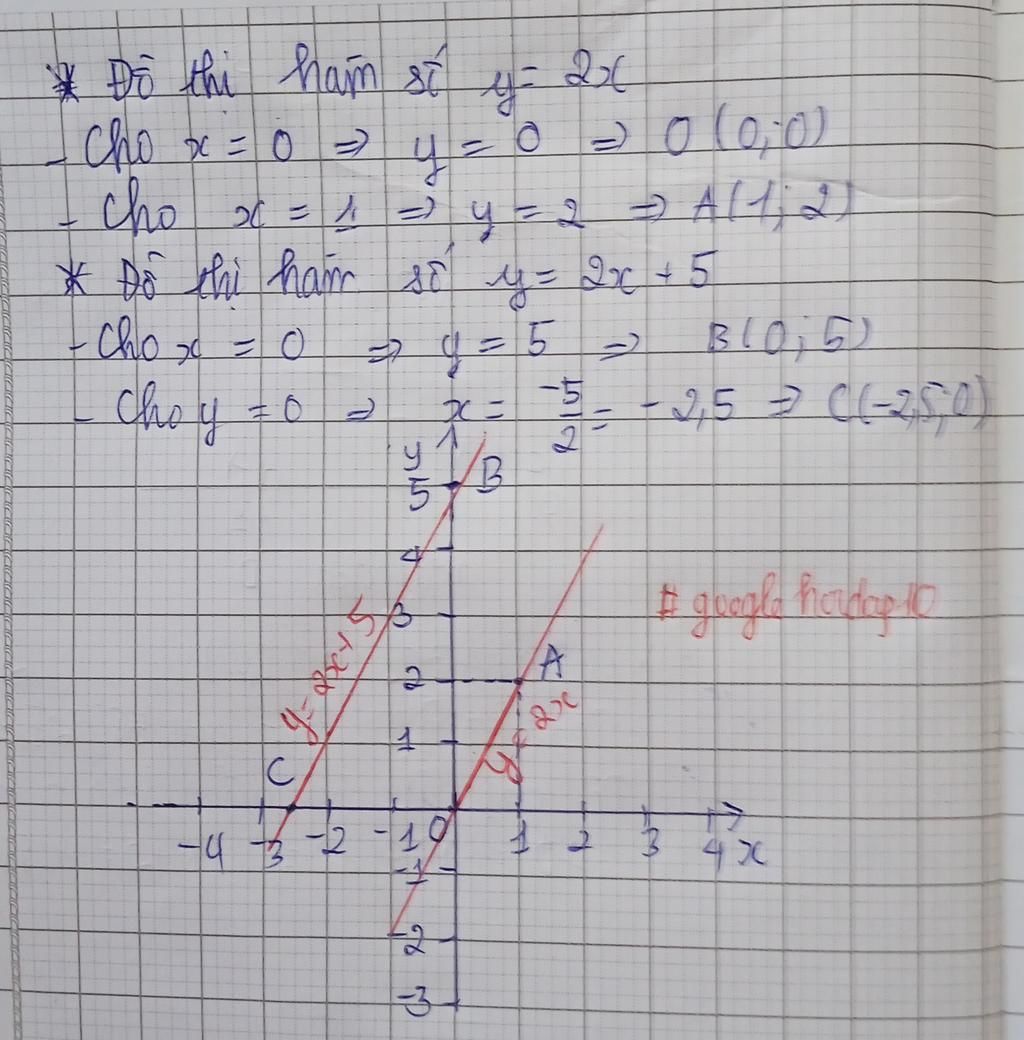 * Đồ thị hàm số y = 2x
- Cho x = 0 => y = 0 => O (0; 0)
- Cho x = 1 => y = 2 => A(1; 2)
* Đồ thị hàm số y = 2x + 5
- Cho x = 0 => y = 5 => B(0; 5)
- Cho y = 0 => x = -5/2 = -2,5 => C(-2,5; 0)
y
5 B
4
3
y = 2x + 5
# google hoidap 10
2 A
y = 2x
1
C
-4 -3 -2 -1 O 1 2 3 4 x
-1
-2
-3